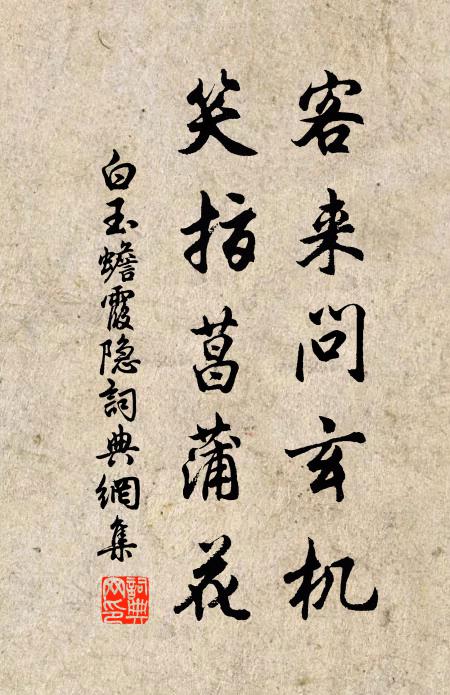 客来问玄机
笑指菖蒲花
白玉蟾霞隐詞典網集
詞典
网印